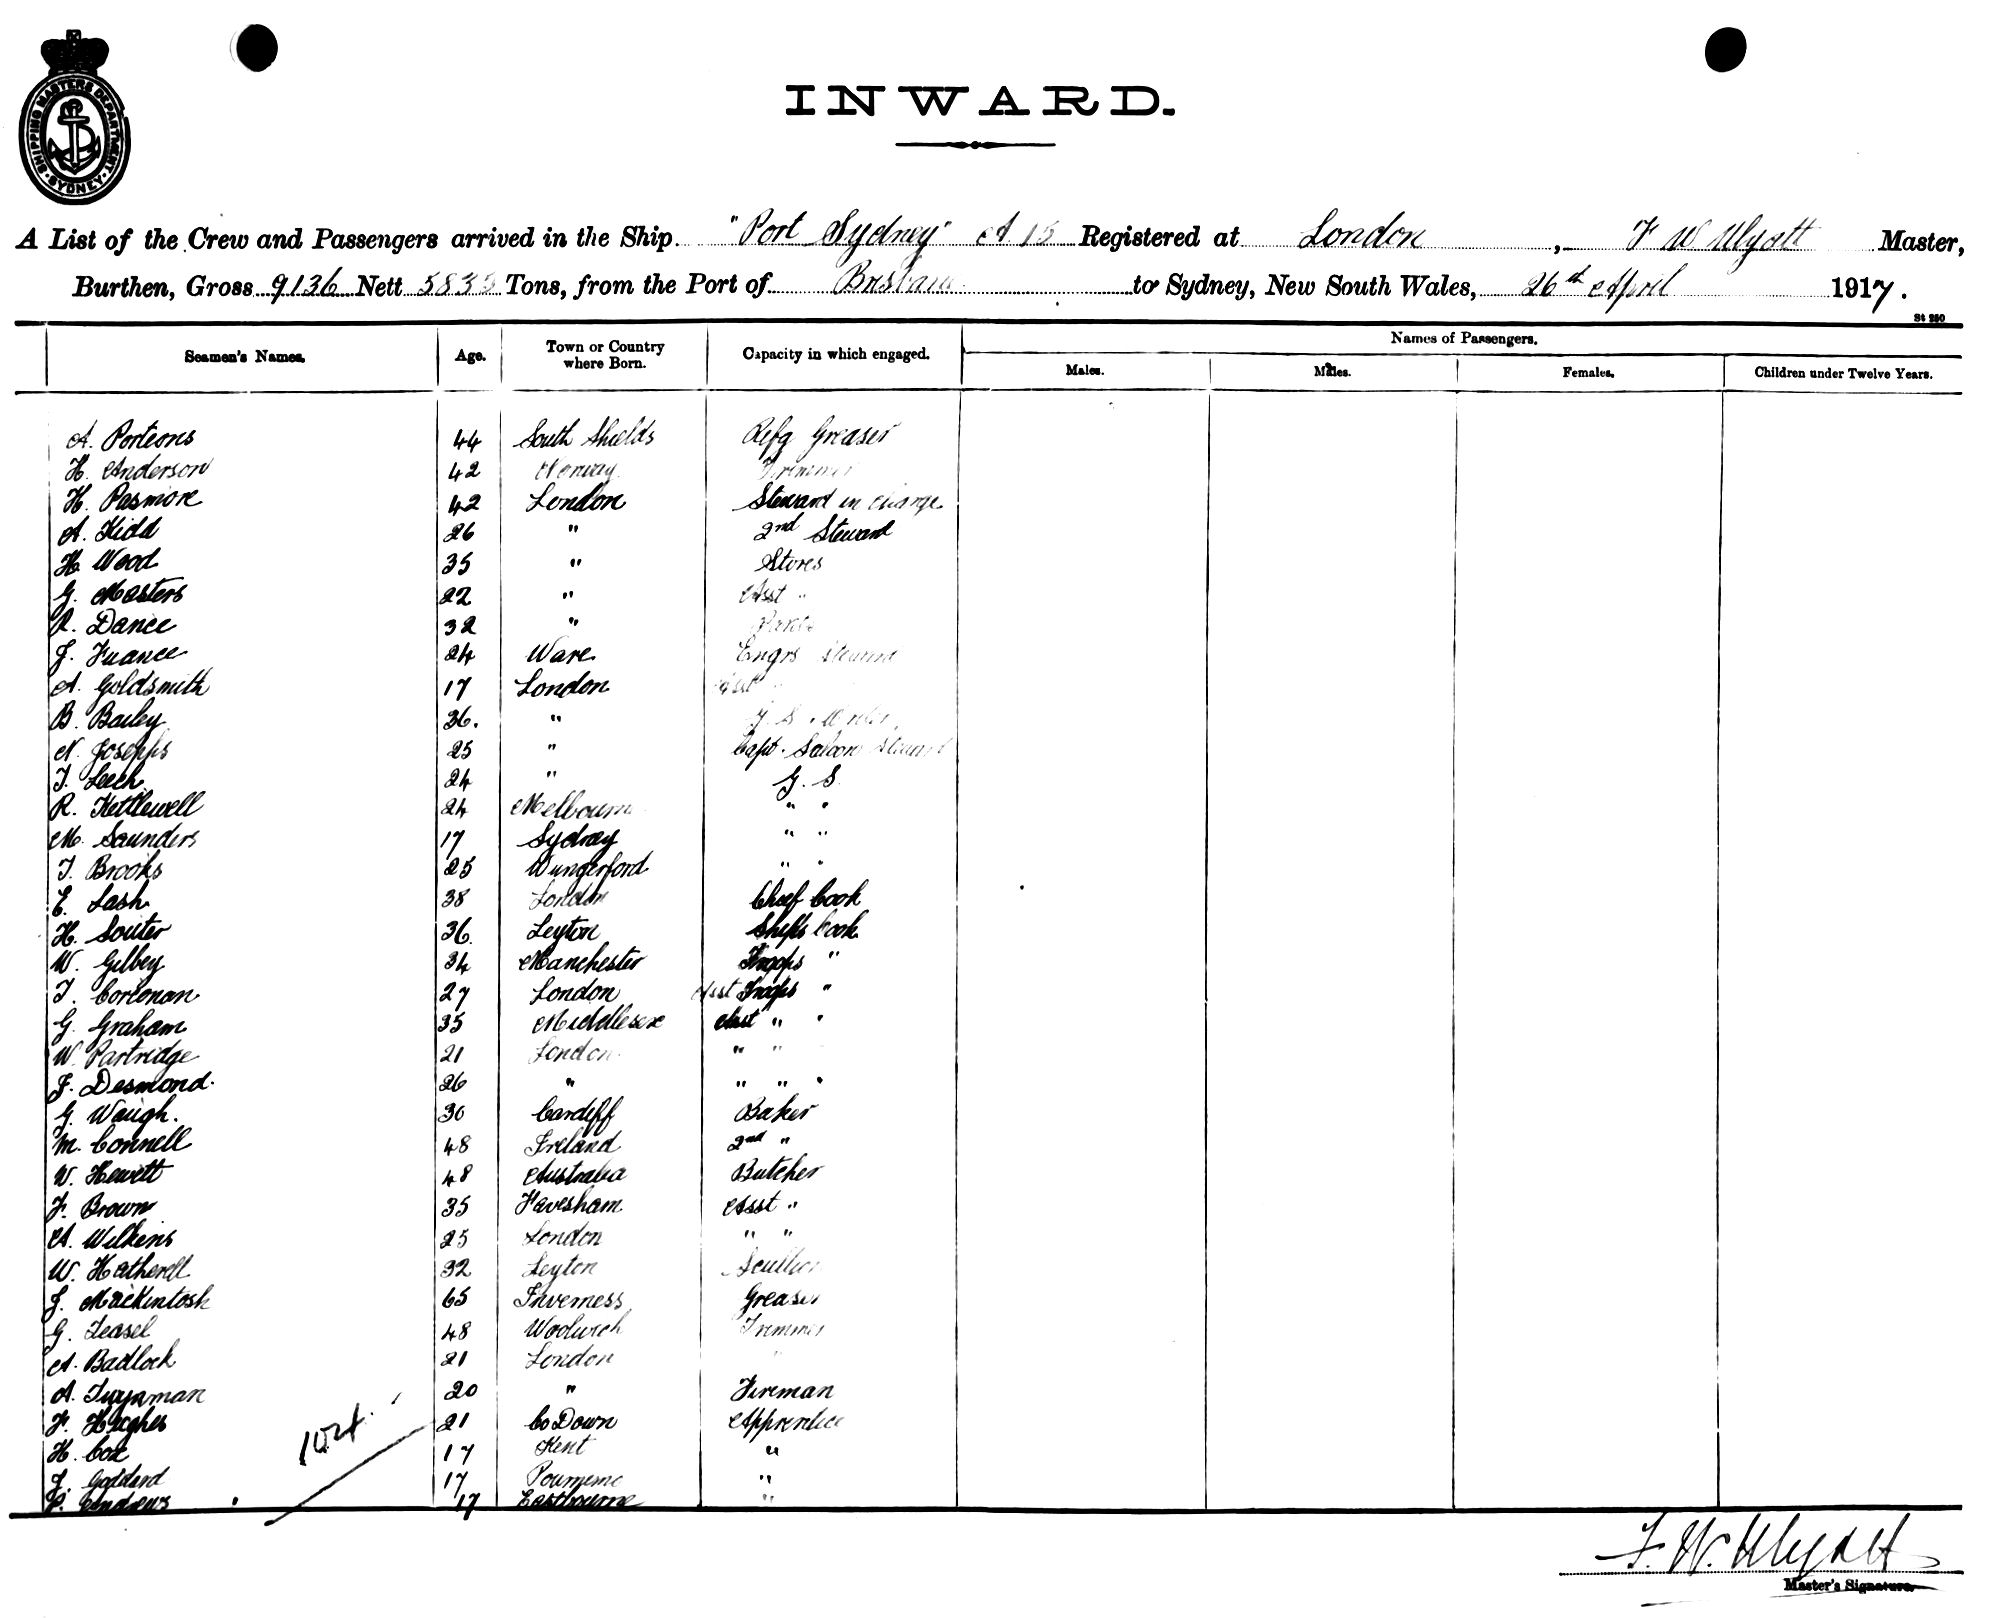 SHIPPING MASTERS DEPARTMENT · SYDNEY ·
INWARD.
A List of the Crew and Passengers arrived in the Ship "Port Sydney" A 15 Registered at London, F W Wyatt Master,
Burthen, Gross 9136 Nett Tons, from the Port of Brisbane to Sydney, New South Wales, 26th April 1917.
St 250
Seamen's Names. Age. Town or Country where Born. Capacity in which engaged. Names of Passengers.
Males. Males. Females. Children under Twelve Years.
A. Porteons 44 South Shields Refg Greaser
H. Anderson 42 Norway Trimmer
H. Pasmore 42 London Steward in charge
A. Kidd 26 " 2nd Steward
H. Wood 35 " Stores
G. Masters 22 " Asst "
R. Dance 32 "
J. Fuance 24 Ware Engrs Steward
A. Goldsmith 17 London Asst
B. Bailey 36. "
N. Josephs 25 " Capt. Saloon Steward
T. Leech 24 " G. S.
R. Kettlewell 24 Melbourne " "
M. Saunders 17 Sydney " "
T. Brooks 25 Wungerford " "
E. Lash 38 London Chief Cook
H. Souter 36. Leyton Ship's Cook
W. Gilbey 34 Manchester Troops "
T. Corconan 27 London Asst Troops "
G. Graham 35 Middlesex Asst " "
W. Partridge 21 London " "
J. Desmond. 26 " " " "
G. Waugh. 30 Cardiff Baker
M. Connell 48 Ireland 2nd "
W. Hewett 48 Australia Butcher
F. Brown 35 Favesham Asst "
A. Wilkins 25 London " "
W. Hatherell 32 Leyton Scullion
J. Mackintosh 65 Inverness Greaser
G. Teasel 48 Woolwich Trimmer
A. Badlock 21 London "
A. Twynman 20 " Fireman
F. Hughes 21 Co Down Apprentice
H. Cox 17 Kent "
J. Goddard 17 "
P. Andrews 17 Eastbourne "
104
F. W. Wyatt
Master's Signature.